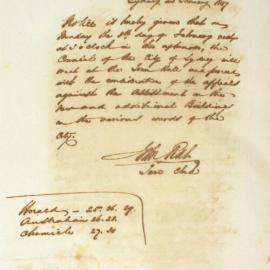 Sydney 25 January 1847
Notice is hereby given that on
Monday the 8th day of February next
at 3 o'clock in the afternoon, the
Council of the City of Sydney will
meet at the Town Hall and proceed
with the consideration of the appeals
against the Assessment on the
New and additional Buildings
in the various wards of the
City.
Town Clerk
Herald - 25. 26. 29
Australian 26. 28.
Chronicle 27. 30